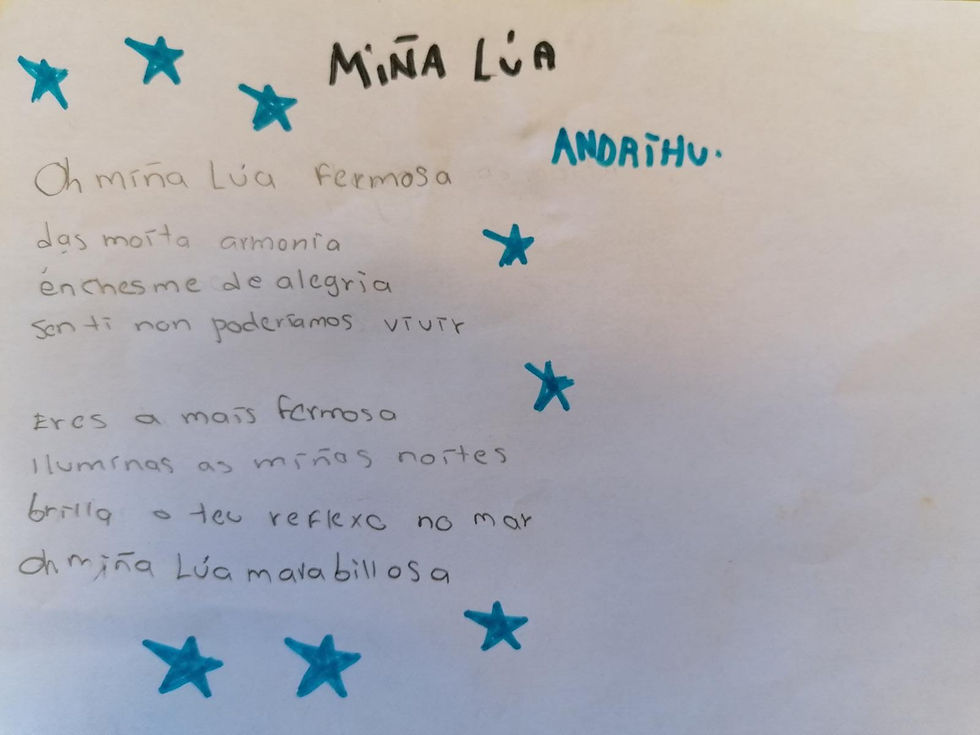 MIÑA LÚA
ANDRIHU.
Oh miña Lúa fermosa
das moita armonia
énchesme de alegria
sen ti non poderiamos vivir
Eres a mais fermosa
Iluminas as miñas noites
brilla o teu reflexo no mar
Oh miña Lúa marabillosa